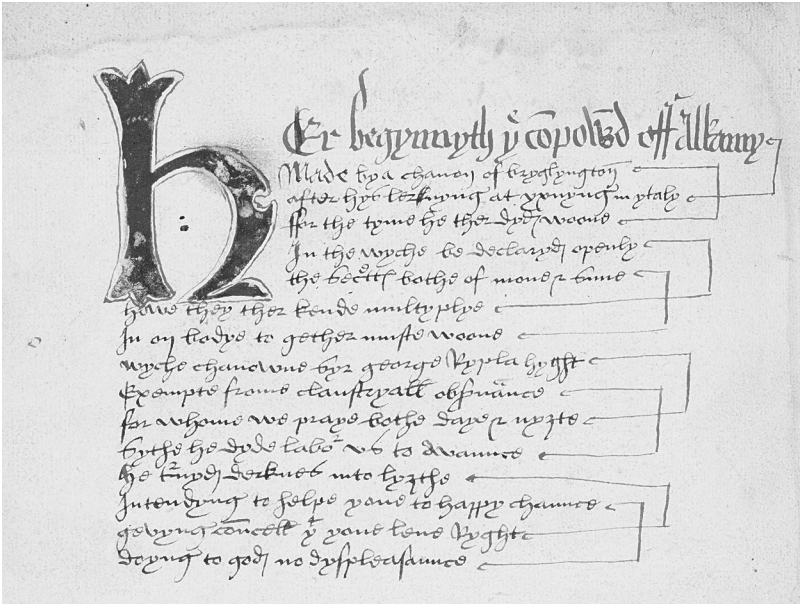 HEr begynnyth yͤ cōpowd off Alkamy
Made by a chanon of bryglyngton
after hys lernyng at yxnyng in ytaly
ffor the tyme he ther dyd woone
In the wyche be declaryd openly
the secretts bothe of mone & sune
howe they ther kende multyplye
In on bodye to gether muste woone
wyche chanowne syr george Rypla hyght
Exempte frome claustryall obsuance
for whome we praye bothe daye & nyȝte
sythe he dyde labor vs to avaunce
he turnyd derknes into lyȝthe
Intendyng to helpe youe to happy chaunce
gevyng coūcell yͭ youe leue Ryght
doyng to god no dyspleasaunce